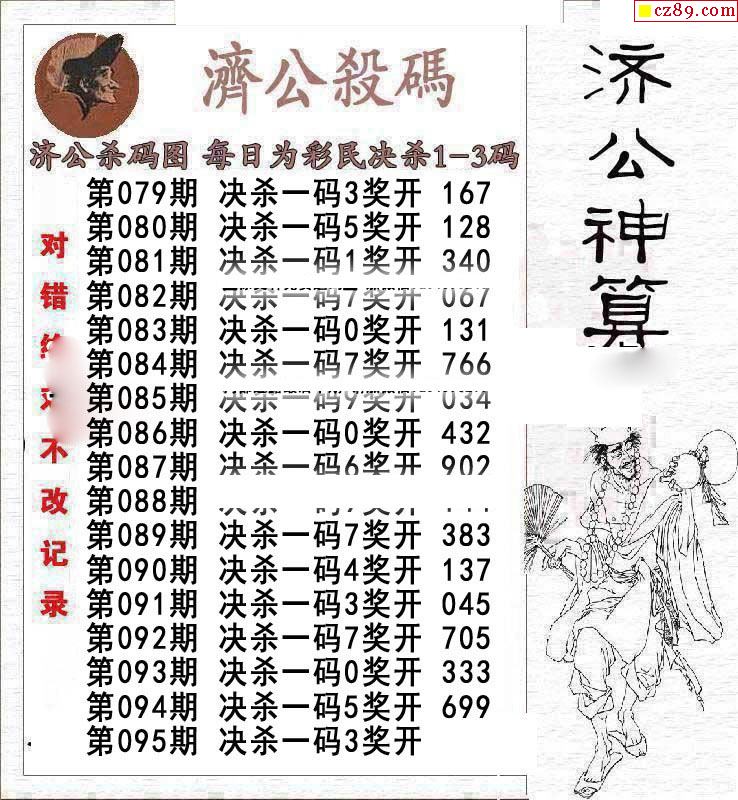 cz89.com
濟公殺碼
济公杀码图 每日为彩民决杀1-3码
第079期 决杀一码3奖开 167
第080期 决杀一码5奖开 128
第081期 决杀一码1奖开 340
第082期 决杀一码7奖开 067
第083期 决杀一码0奖开 131
第084期 决杀一码7奖开 766
第085期 决杀一码9奖开 034
第086期 决杀一码0奖开 432
第087期 决杀一码6奖开 902
第088期
第089期 决杀一码7奖开 383
第090期 决杀一码4奖开 137
第091期 决杀一码3奖开 045
第092期 决杀一码7奖开 705
第093期 决杀一码0奖开 333
第094期 决杀一码5奖开 699
第095期 决杀一码3奖开
对错不改记录
济公神算